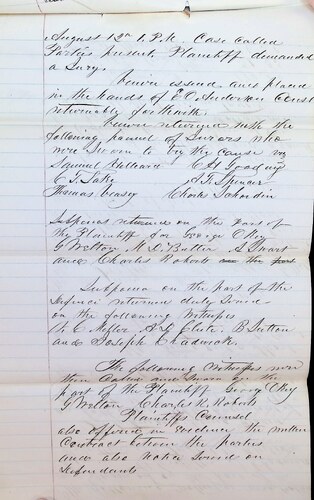 August 12th 1. P.M. Case called
Parties present Plaintiff demanded
a Jury.
Venire issued and placed
in the hands of E C Anderson Const
returnable forthwith.
Venire returned with the
following pannel of Jurors who
were sworn to try the cause viz
Samuel Bullard C H Gooding
C. F. Tate A. F. Spencer
Thomas Veasey Charles
Subpoena returned on the part of
the Plaintiff for George Okey
G Welton M. D. Butler S Swart
and Charles Roberts on the part
Subpoena on the part of the
Defence returned duly served
on the following Witnesses
W. C. Miller A. D. Clute, B Sutton
and Joseph Chadwick.
The following Witnesses were
then Called and sworn on the
part of the Plaintiff George Okey
G Welton Charles R. Roberts
Plaintiffs Counsel
also offered in Evidence the written
Contract between the parties
and also Notice served on
Defendants